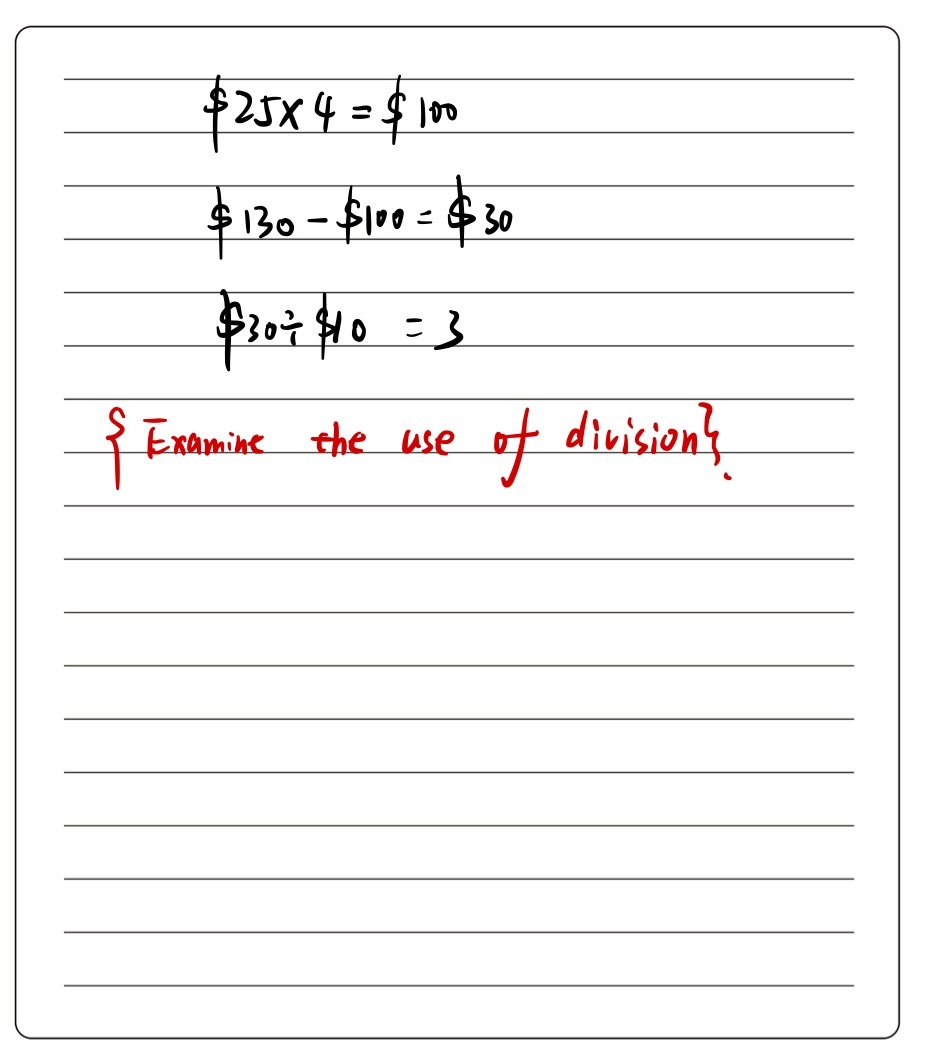 $25×4=$100
$130-$100=$30
$30÷$10 =3
{Examine the use of division}.